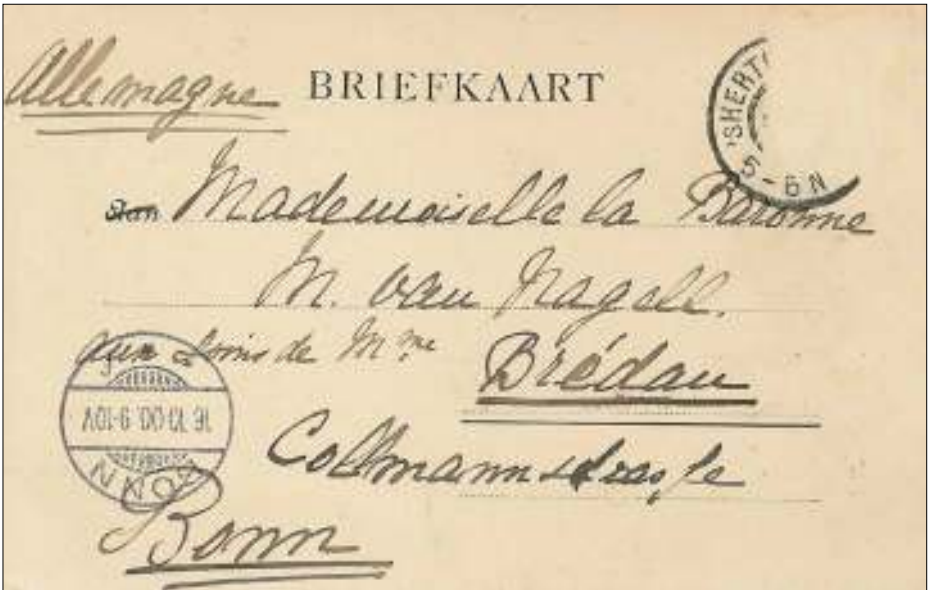 Allemagne
BRIEFKAART
'SHERT
5-6N
Aan Mademoiselle la Baronne
M. van Nagell.
aux soins de Mme
Brédau
16.10.00.9-10V
BONN
Bonn